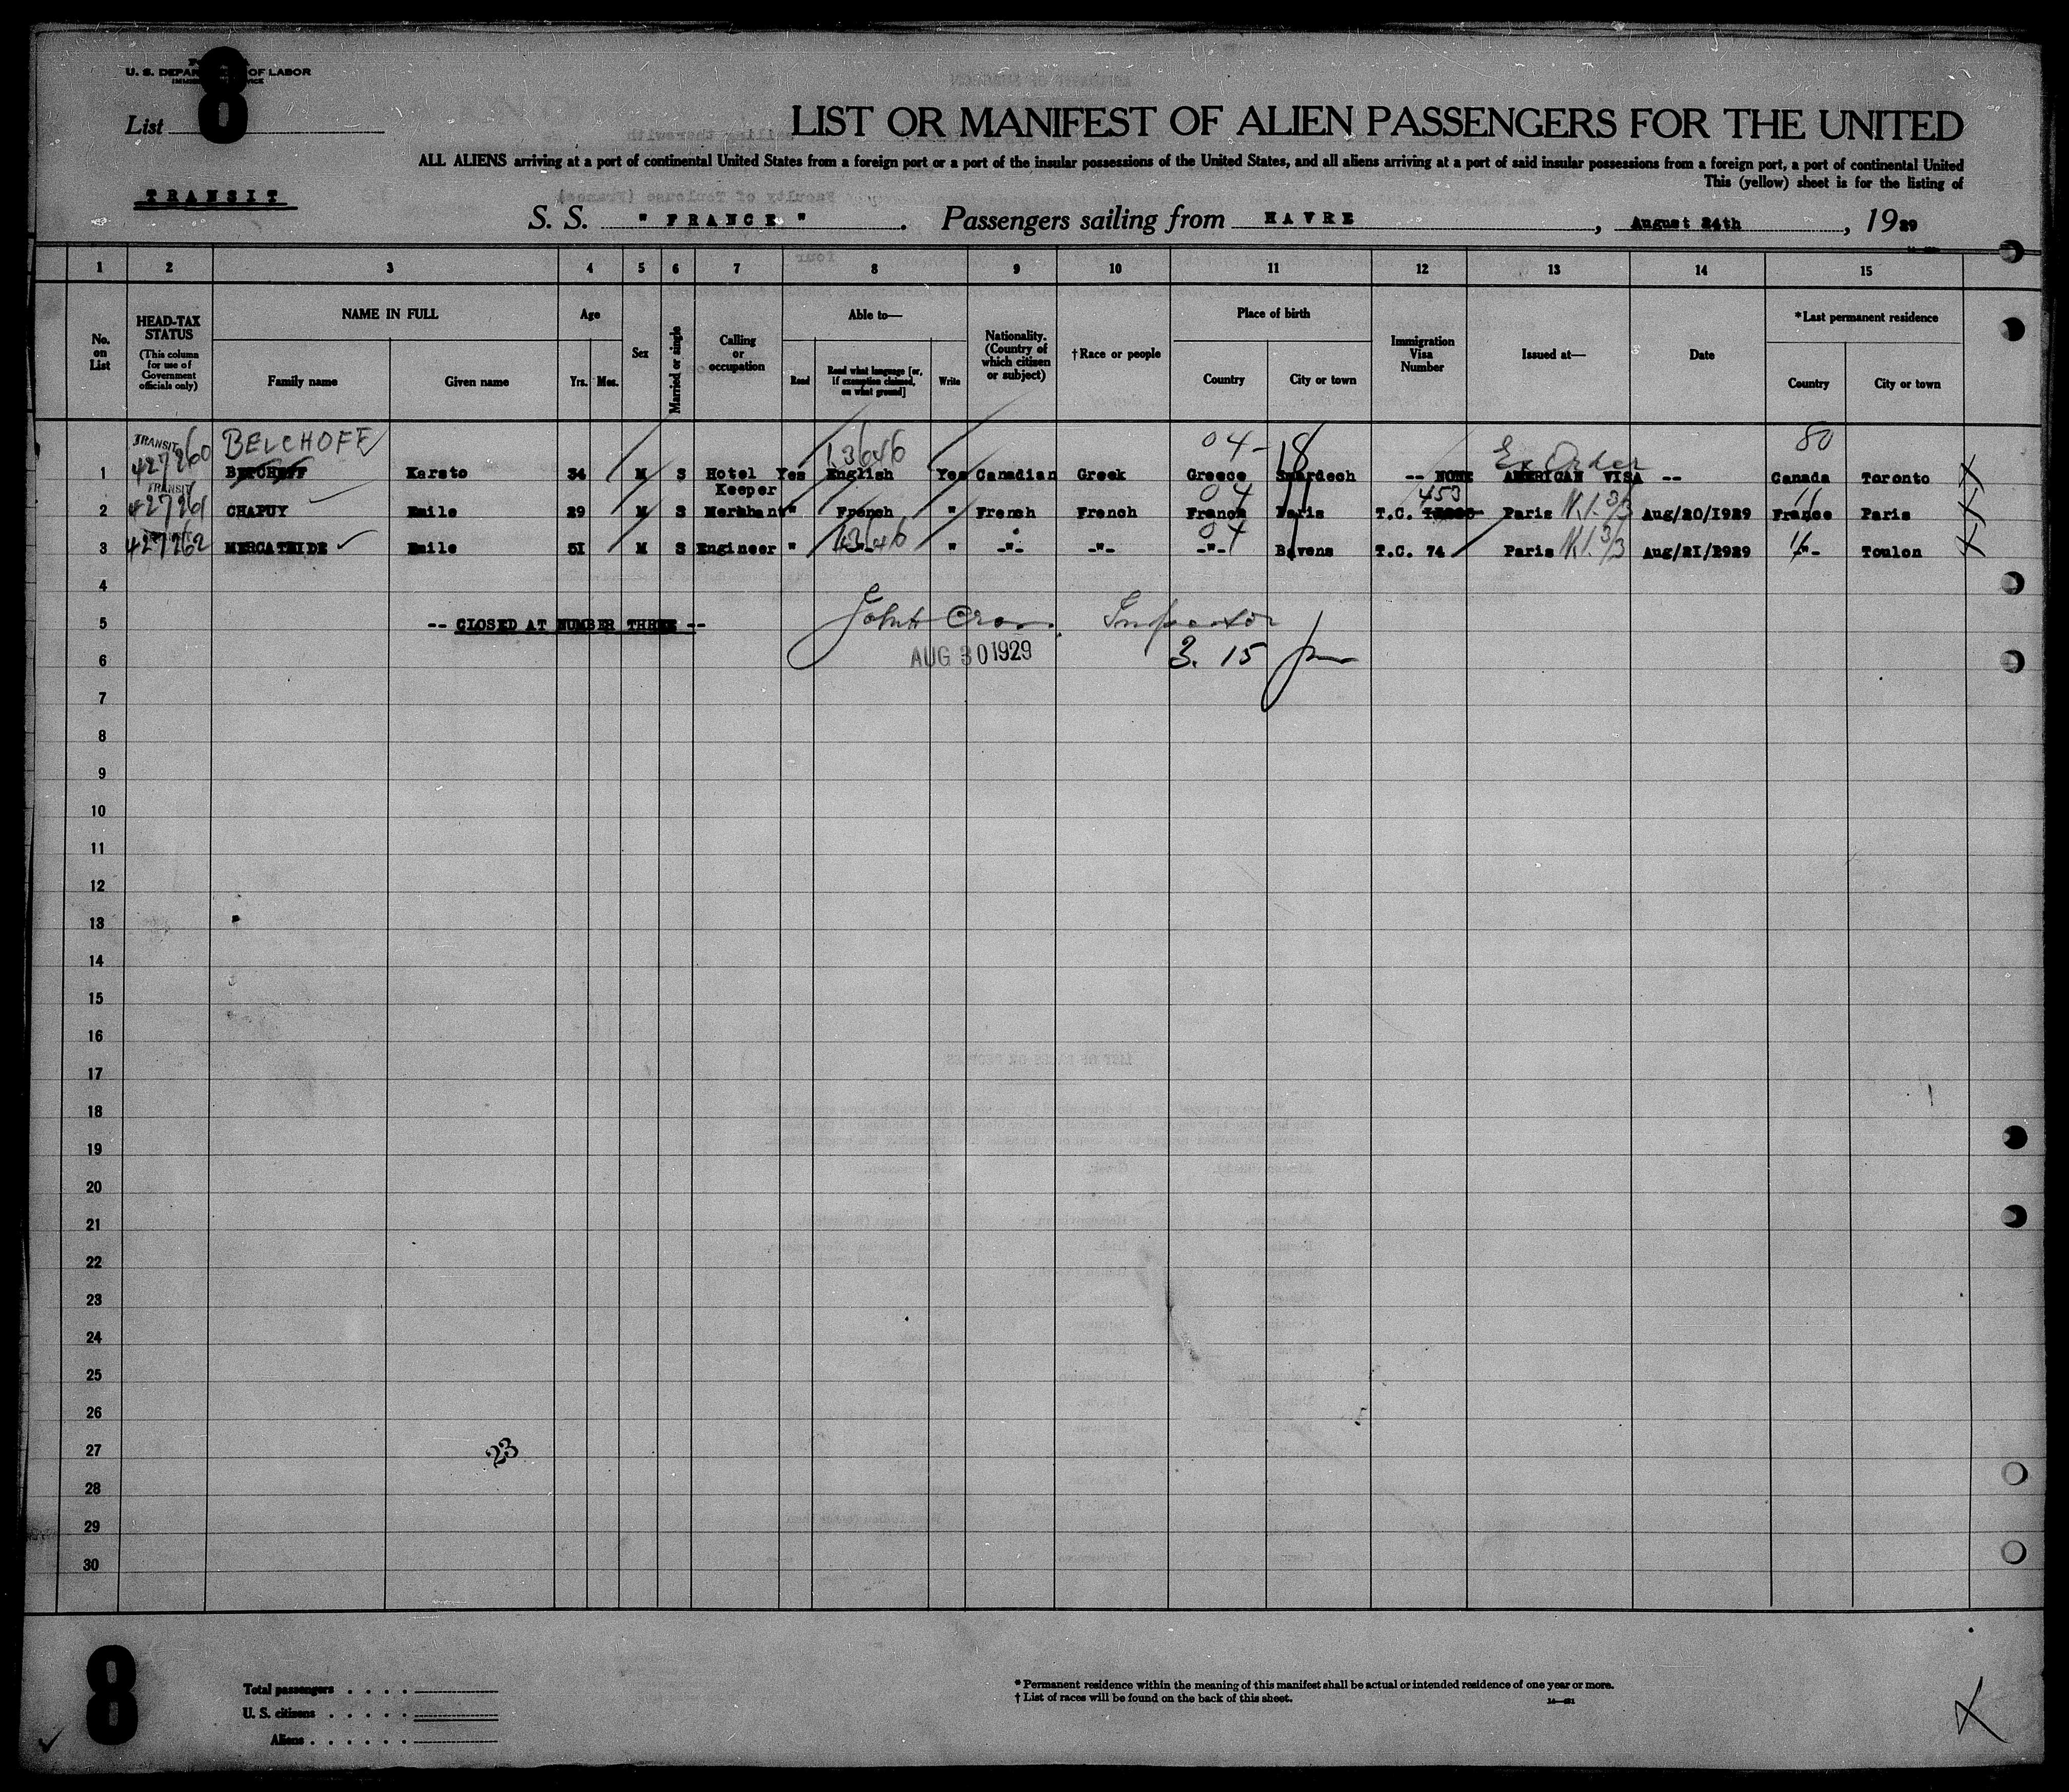 8
U. S. DEPARTMENT OF LABOR
List
LIST OR MANIFEST OF ALIEN PASSENGERS FOR THE UNITED
ALL ALIENS arriving at a port of continental United States from a foreign port or a port of the insular possessions of the United States, and all aliens arriving at a port of said insular possessions from a foreign port, a port of continental United
This (yellow) sheet is for the listing of
TRANSIT
S. S. "FRANCE". Passengers sailing from HAVRE, August 24th, 1929
1 2 3 4 5 6 7 8 9 10 11 12 13 14 15
No. on List
HEAD-TAX STATUS (This column for use of Government officials only)
NAME IN FULL Family name Given name
Age Yrs. Mos.
Sex
Married or single
Calling or occupation
Able to— Read Read what language [or, if exemption claimed, on what ground] Write
Nationality. (Country of which citizen or subject)
†Race or people
Place of birth Country City or town
Immigration Visa Number
Issued at—
Date
*Last permanent residence Country City or town
TRANSIT 427260 BELCHOFF 13646 04-18 Ex Order 80
1 Karsto 34 M S Hotel Keeper Yes English Yes Canadian Greek Greece Smardech -- NONE AMERICAN VISA -- Canada Toronto
TRANSIT 427261 04 453
2 CHAPUY Emile 29 M S Merchant " French " French French France Paris T.C. Paris K1.3/3 Aug/20/1929 France Paris
427262 13646 04
3 MERCATRIDE Emile 51 M S Engineer " -"- " -"- -"- -"- Bavens T.C. 74 Paris K1.3/3 Aug/21/2929 -"- Toulon
4
5 -- CLOSED AT NUMBER THREE -- John Inspector
6 AUG 30 1929 3.15 pm
7
8
9
10
11
12
13
14
15
16
17
18
19
20
21
22
23
24
25
26
27 23
28
29
30
8
Total passengers . . . .
U. S. citizens . . . . .
Aliens . . . . . .
* Permanent residence within the meaning of this manifest shall be actual or intended residence of one year or more.
† List of races will be found on the back of this sheet.